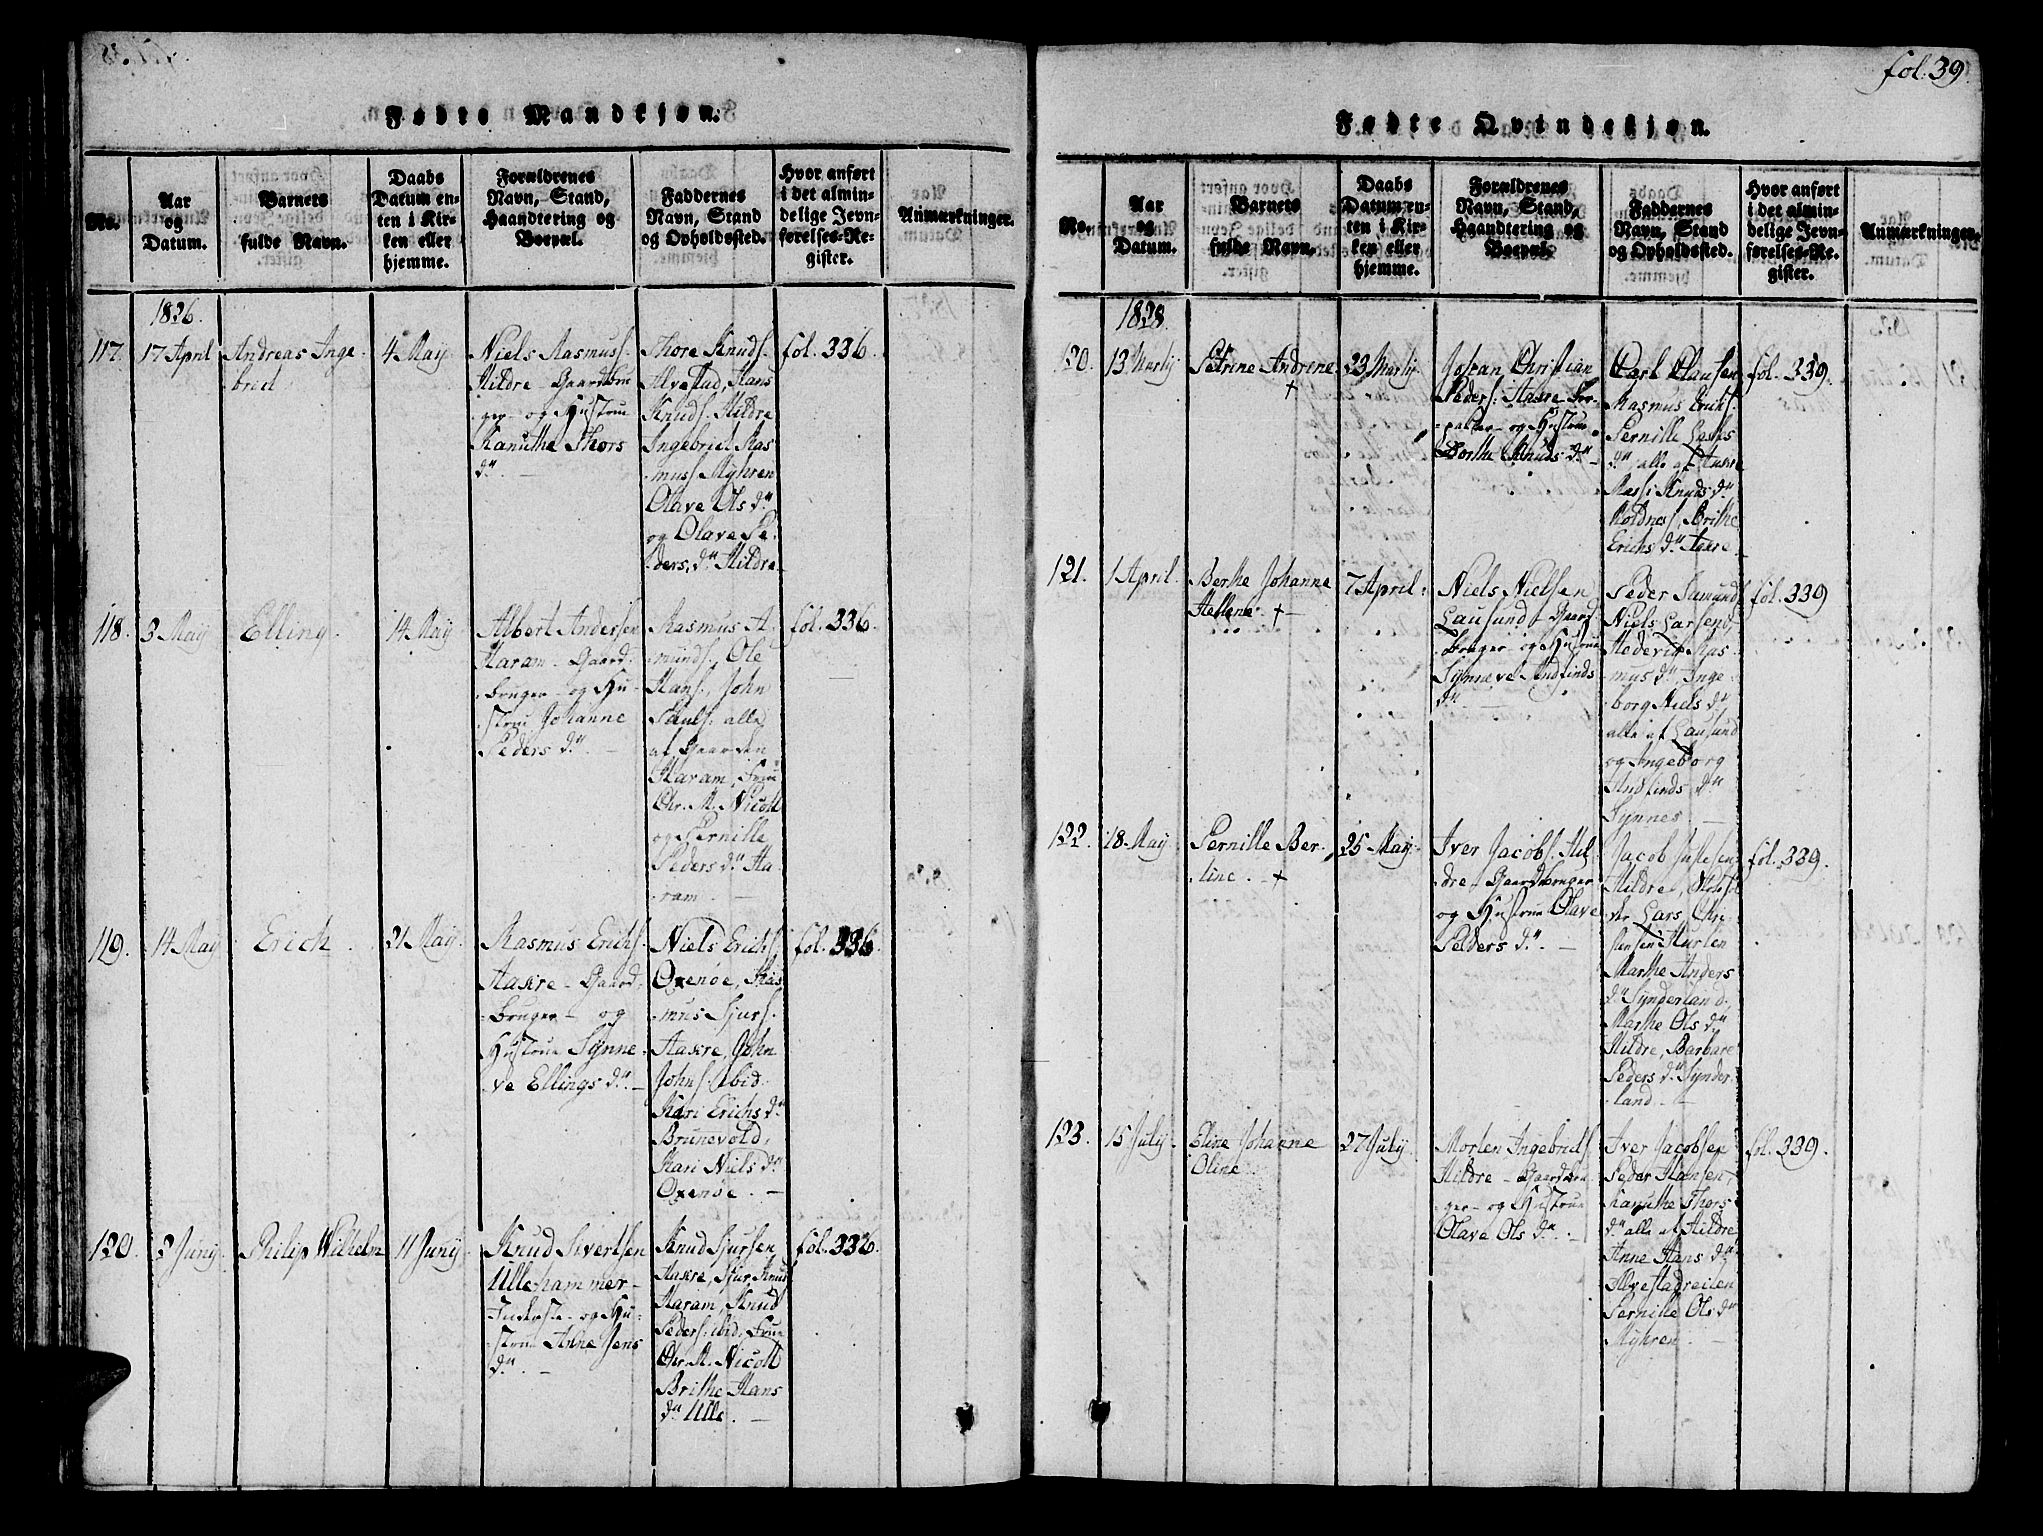 Fødte Mandkjøn.
No.
Aar
og
Datum.
Barnets
fulde Navn.
Daabs
Datum en-
ten i Kir-
ken eller
hjemme.
Forældrenes
Navn, Stand,
Haandtering og
Boepæl.
Faddernes
Navn, Stand
og Opholdssted.
Hvor anført
i det almin-
delige Jevn-
førelses-Re-
gister.
Anmærkninger.
1826.
117.
17 April
Andreas Inge
bret
4 May
Niels Rasmuss.
Hildre - Gaardbru
ger - og Hustrue
Kanuthe Thors
dr. -
Thore Knuds.
Alvestad, Hans
Knuds. Hildre
Ingebret Ras
mus. Myhren
Olave Ols dr.
og Olave Pe-
ders. dr. Hildre -
fol. 336.
118.
3 May
Elling.
14 May
Albert Andersen
Haram - Gaard
bruger - og Hu-
strue Johanne
Peders dr. -
Rasmus A
munds. Ole
Hans., John
Pauls. alle
af Gaarden
Haram, Frue
Chr. M. Nicoll
og Pernille
Peders dr. Ha
ram. -
fol. 336.
119.
14 May
Erich.
21 May
Rasmus Erichs.
Aakre - Gaard
bruger - og
Hustrue Synne
ve Ellings dr. -
Niels Erichs.
Oxenøe, Ras
mus Sjurs.
Aakre, John
Johns. ibid.
Kari Erichs dr.
Brunevold,
Kari Niels dr.
Oxenøe. -
fol. 336
120.
2 Juny.
Philip Wilhelm
11 Juny
Knud Sivertsen
Ullehammer -
Inderste - og Hu-
strue Anne Jens
dr. -
Knud Sjursen
Aakre, Sjur Knus
Haram, Knud
Peders. ibid, Frue
Chr. M. Nicoll
Brithe Hans
dr. Ulle. -
fol. 336.
fol. 39.
Fødte Qvindekjøn.
No.
Aar
og
Datum.
Barnets
fulde Navn.
Daabs
Datum en-
ten i Kir-
ken eller
hjemme.
Forældrenes
Navn, Stand,
Haandtering og
Boepæl.
Faddernes
Navn, Stand
og Opholdssted.
Hvor anført
i det almin-
delige Jevn-
førelses-Re-
gister.
Anmærkninger.
1828.
120.
13 Marty
Petrine Andrine
+
23 Marty
Johan Christian
Peders. Aakre For-
pagter - og Hustrue
Dorthe Knuds dr. -
Carl Clausen
Rasmus Erichs.
Pernille Lars
dr. alle af Aakre
Mass. Knuds dr.
Roldnes, Brithe
Erichs dr. Aakre -
fol. 339.
121.
1 April.
Berthe Johanne
Hellene. +
7 April.
Niels Nielsen
Lausund - Gaard
bruger - og Hustrue
Synneve Andfinds
dr. -
Peder Samunds
Niels Larsen,
Hedevig Ras-
mus dr., Inge-
borg Niels dr.
alle af Lausund
og Ingeborg
Andfinds dr.
Synnes. -
fol. 339
122.
18 May
Pernille Ber-
line. - +
25 May
Iver Jacobs. Hil-
dre - Gaardbruger
og Hustrue Olave
Peders dr. -
Jacob
Hildre,
Lars Chri-
stensen
Marthe Anders
dr. Synderland.
Marthe Ols dr.
Hildre, Barbare
Peders dr. Synder-
land. -
fol. 339.
123.
15 July.
Eline Johanne
Oline
27 July
Morten Ingebrets.
Hildre - Gaardbru
ger - og Hustrue
Olave Ols dr. -
Iver Jacobsen
Peder Hansen,
Kanuthe Thors
dr. alle af Hildre
Anne Hans dr.
Alvestadreiten
Pernille Ols dr.
Myhren. -
fol. 339.